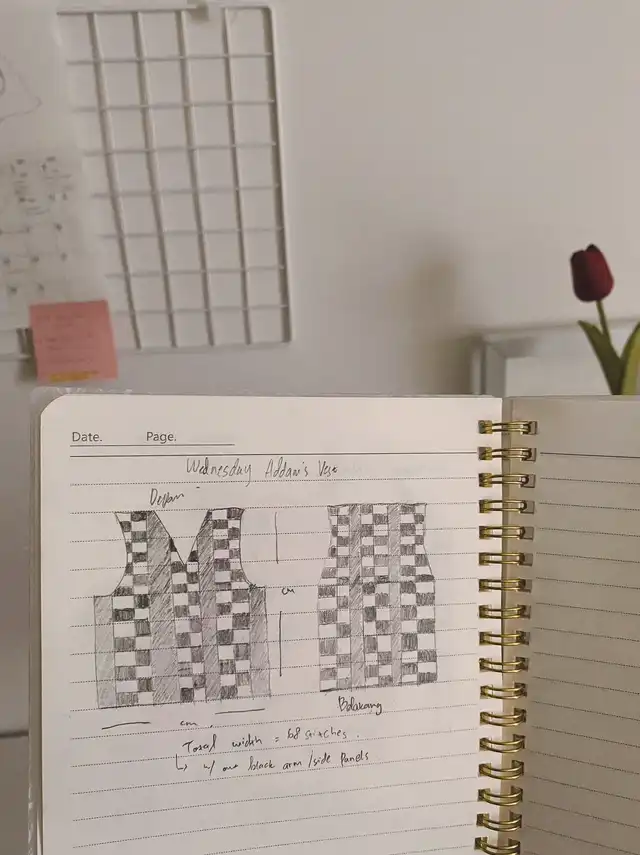 Date. Page.
Wednesday Addam's Vest
Depan
cm
Belakang
cm
Total width = 68 stitches.
↳ w/ one black arm/side panels